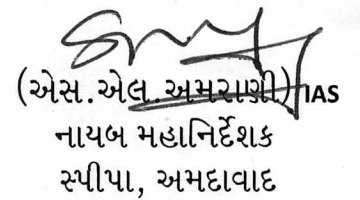 (એસ.એલ.અમરાણી) IAS
નાયબ મહાનિર્દેશક
સ્પીપા, અમદાવાદ